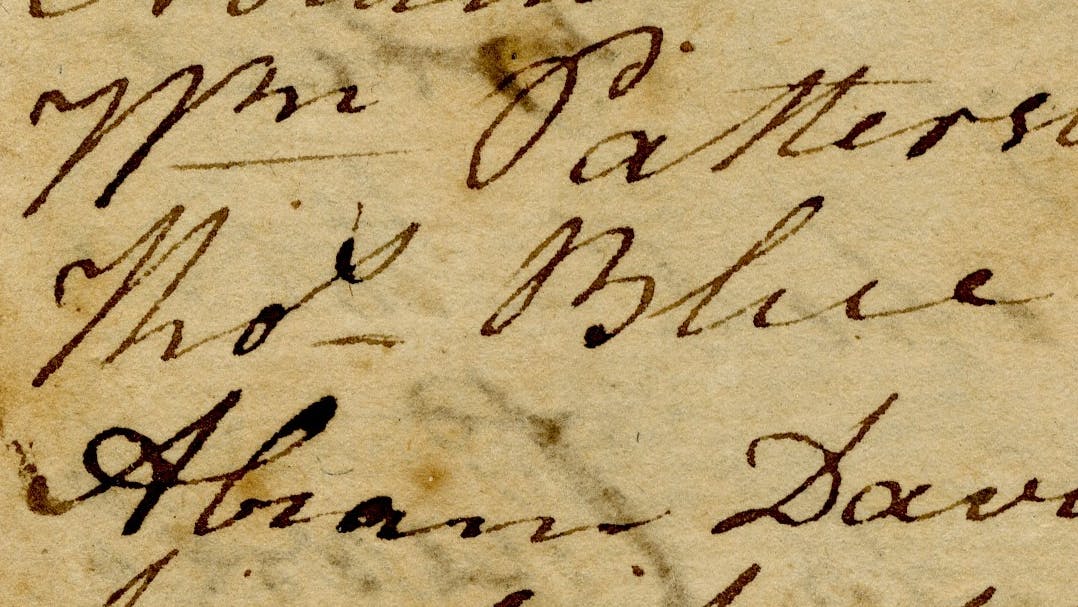 Wm Patters
Thos Blue
Abram Dav